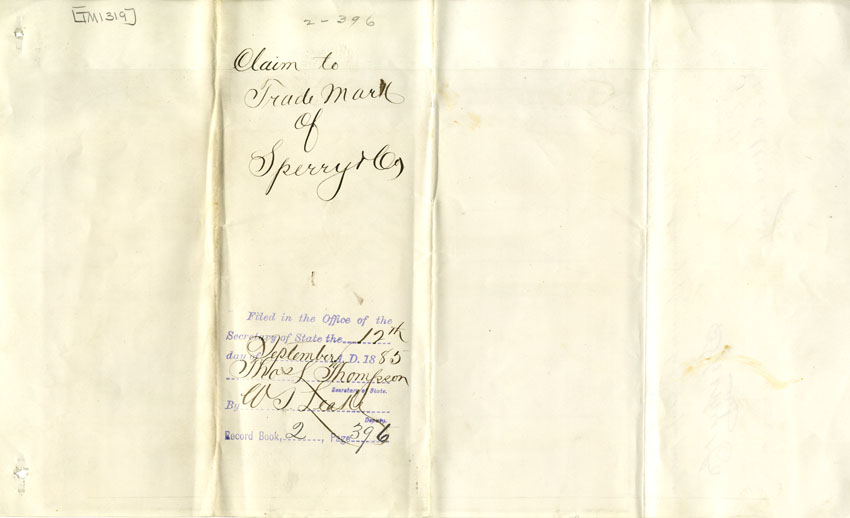 [TM1319]
2-396
Claim to
Trade Mark
of
Sperry & Co
Filed in the Office of the
Secretary of State the 12th
day of September A.D. 1885
Thos L Thompson
Secretary of State.
By W J Leak
Deputy.
Record Book, 2, Page 396